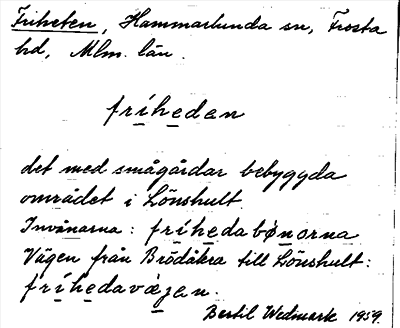 Friheten, Hammarlunda sn, Frosta
hd, Mlm. län.
fríhedan
det med smågårdar bebyggda
området i Lönshult.
Invånarna: fríhedabǿnorna
Vägen från Brödåkra till Lönshult:
fríhedavæjen.
Bertil Wedmark 1959.